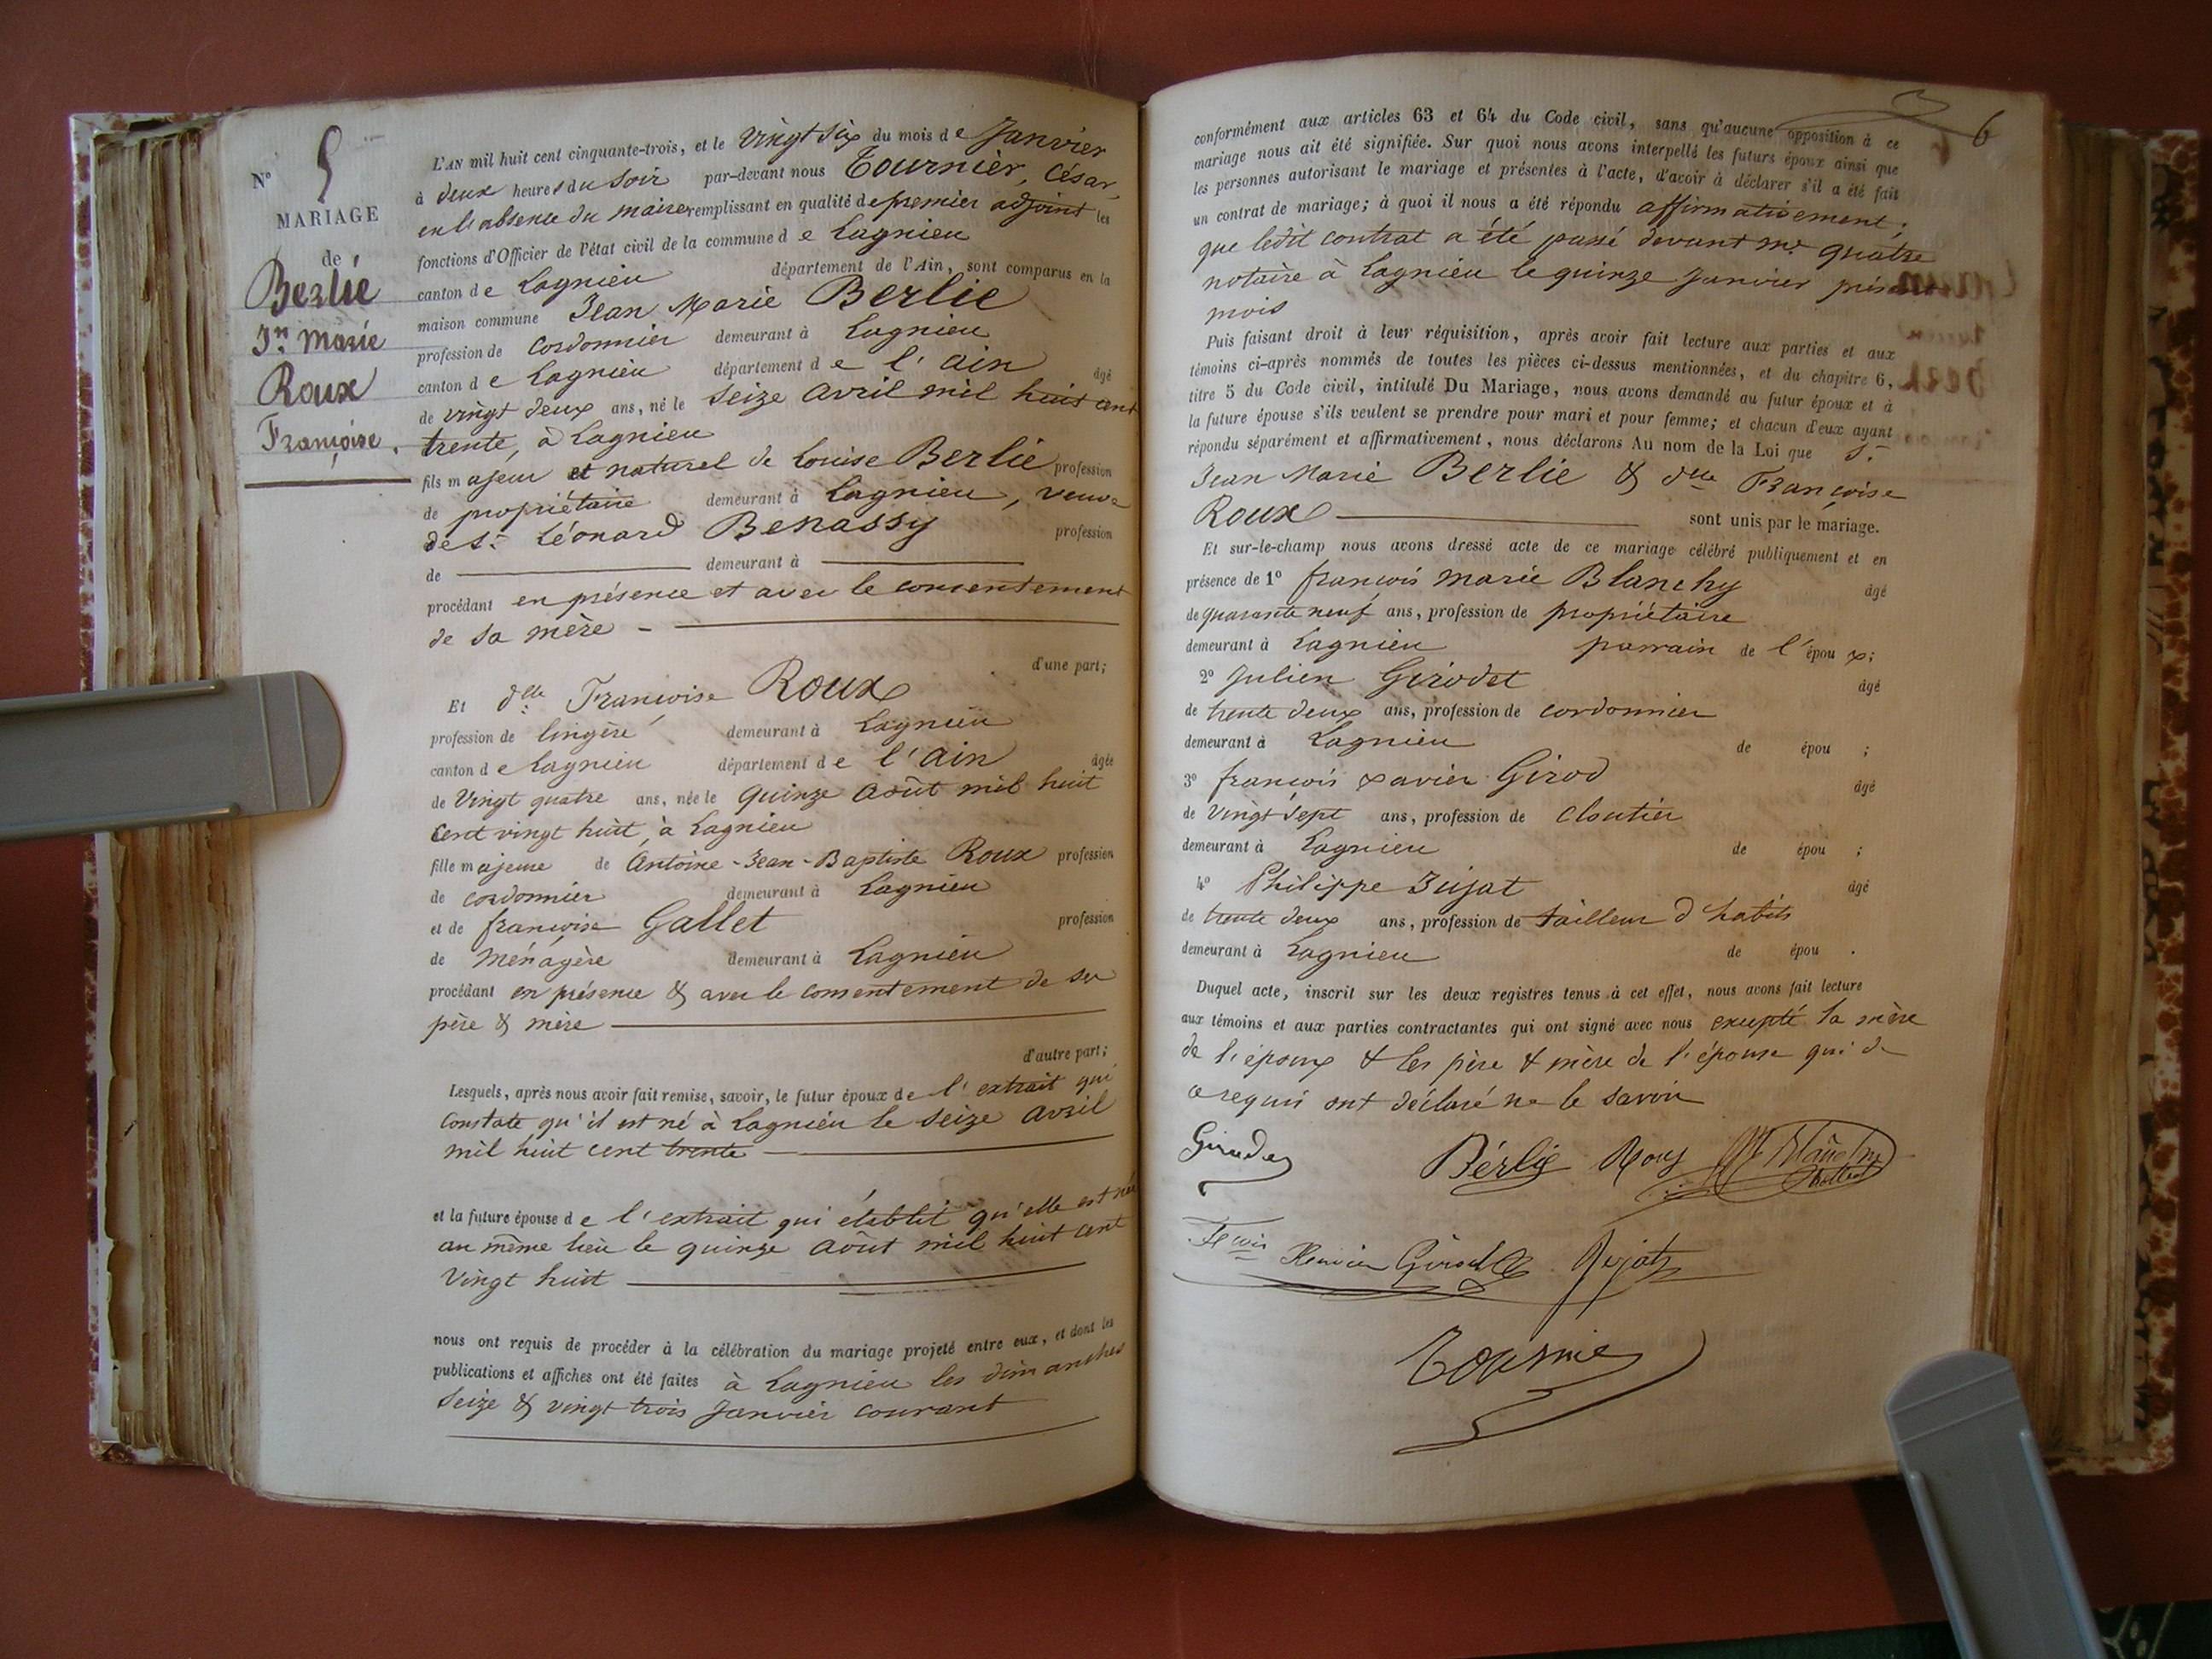 N° 5
MARIAGE
de
Berlié
Jn. Marie
Roux
Françoise.
L'AN mil huit cent cinquante-trois, et le Vingt six du mois de Janvier
à deux heures du soir par-devant nous Tournier, César,
en l'absence du maire remplissant en qualité de premier adjoint les
fonctions d'Officier de l'état civil de la commune de Lagnieu
canton de Lagnieu département de l'Ain, sont comparus en la
maison commune Jean Marie Berlie
profession de cordonnier demeurant à Lagnieu
canton de Lagnieu département de l'ain âgé
de vingt deux ans, né le seize avril mil huit cent
trente, à Lagnieu
fils majeur et naturel de Louise Berlie profession
de propriétaire demeurant à Lagnieu, veuve
de sr. Léonard Benassy profession
de demeurant à
procédant en présence et avec le consentement
de sa mère
d'une part;
Et dlle Françoise Roux
profession de lingère demeurant à Lagnieu
canton de Lagnieu département de l'ain âgée
de Vingt quatre ans, née le quinze août mil huit
cent vingt huit, à Lagnieu
fille majeure de Antoine-Jean-Baptiste Roux profession
de cordonnier demeurant à Lagnieu
et de françoise Gallet profession
de Ménagère demeurant à Lagnieu
procédant en présence & avec le consentement de ses
père & mère
d'autre part;
Lesquels, après nous avoir fait remise, savoir, le futur époux de l'extrait qui
constate qu'il est né à Lagnieu le seize avril
mil huit cent trente
et la future épouse de l'extrait qui établit qu'elle est née
au même lieu le quinze août mil huit cent
Vingt huit
nous ont requis de procéder à la célébration du mariage projeté entre eux, et dont les
publications et affiches ont été faites à Lagnieu les dimanches
seize & vingt trois Janvier courant
6
conformément aux articles 63 et 64 du Code civil, sans qu'aucune opposition à ce
mariage nous ait été signifiée. Sur quoi nous avons interpellé les futurs époux ainsi que
les personnes autorisant le mariage et présentes à l'acte, d'avoir à déclarer s'il a été fait
un contrat de mariage; à quoi il nous a été répondu affirmativement;
que ledit contrat a été passé devant me. quatre
notaire à Lagnieu le quinze Janvier présent
mois
Puis faisant droit à leur réquisition, après avoir fait lecture aux parties et aux
témoins ci-après nommés de toutes les pièces ci-dessus mentionnées, et du chapitre 6,
titre 5 du Code civil, intitulé Du Mariage, nous avons demandé au futur époux et à
la future épouse s'ils veulent se prendre pour mari et pour femme; et chacun d'eux ayant
répondu séparément et affirmativement, nous déclarons Au nom de la Loi que Sr.
Jean Marie Berlie & dlle Françoise
Roux sont unis par le mariage.
Et sur-le-champ nous avons dressé acte de ce mariage célébré publiquement et en
présence de 1° françois marie Blanchy âgé
de quarante neuf ans, profession de propriétaire
demeurant à Lagnieu parrain de l'époux;
2° Julien Girodet âgé
de trente deux ans, profession de cordonnier
demeurant à Lagnieu de épou ;
3° françois xavier Girod âgé
de vingt sept ans, profession de cloutier
demeurant à Lagnieu de épou ;
4° Philippe Jujat âgé
de trente deux ans, profession de tailleur d'habits
demeurant à Lagnieu de épou .
Duquel acte, inscrit sur les deux registres tenus à cet effet, nous avons fait lecture
aux témoins et aux parties contractantes qui ont signé avec nous excepté la mère
de l'époux & les père & mère de l'épouse qui de
ce requis ont déclaré ne le savoir
Berlie Roux
Girod
Tournier